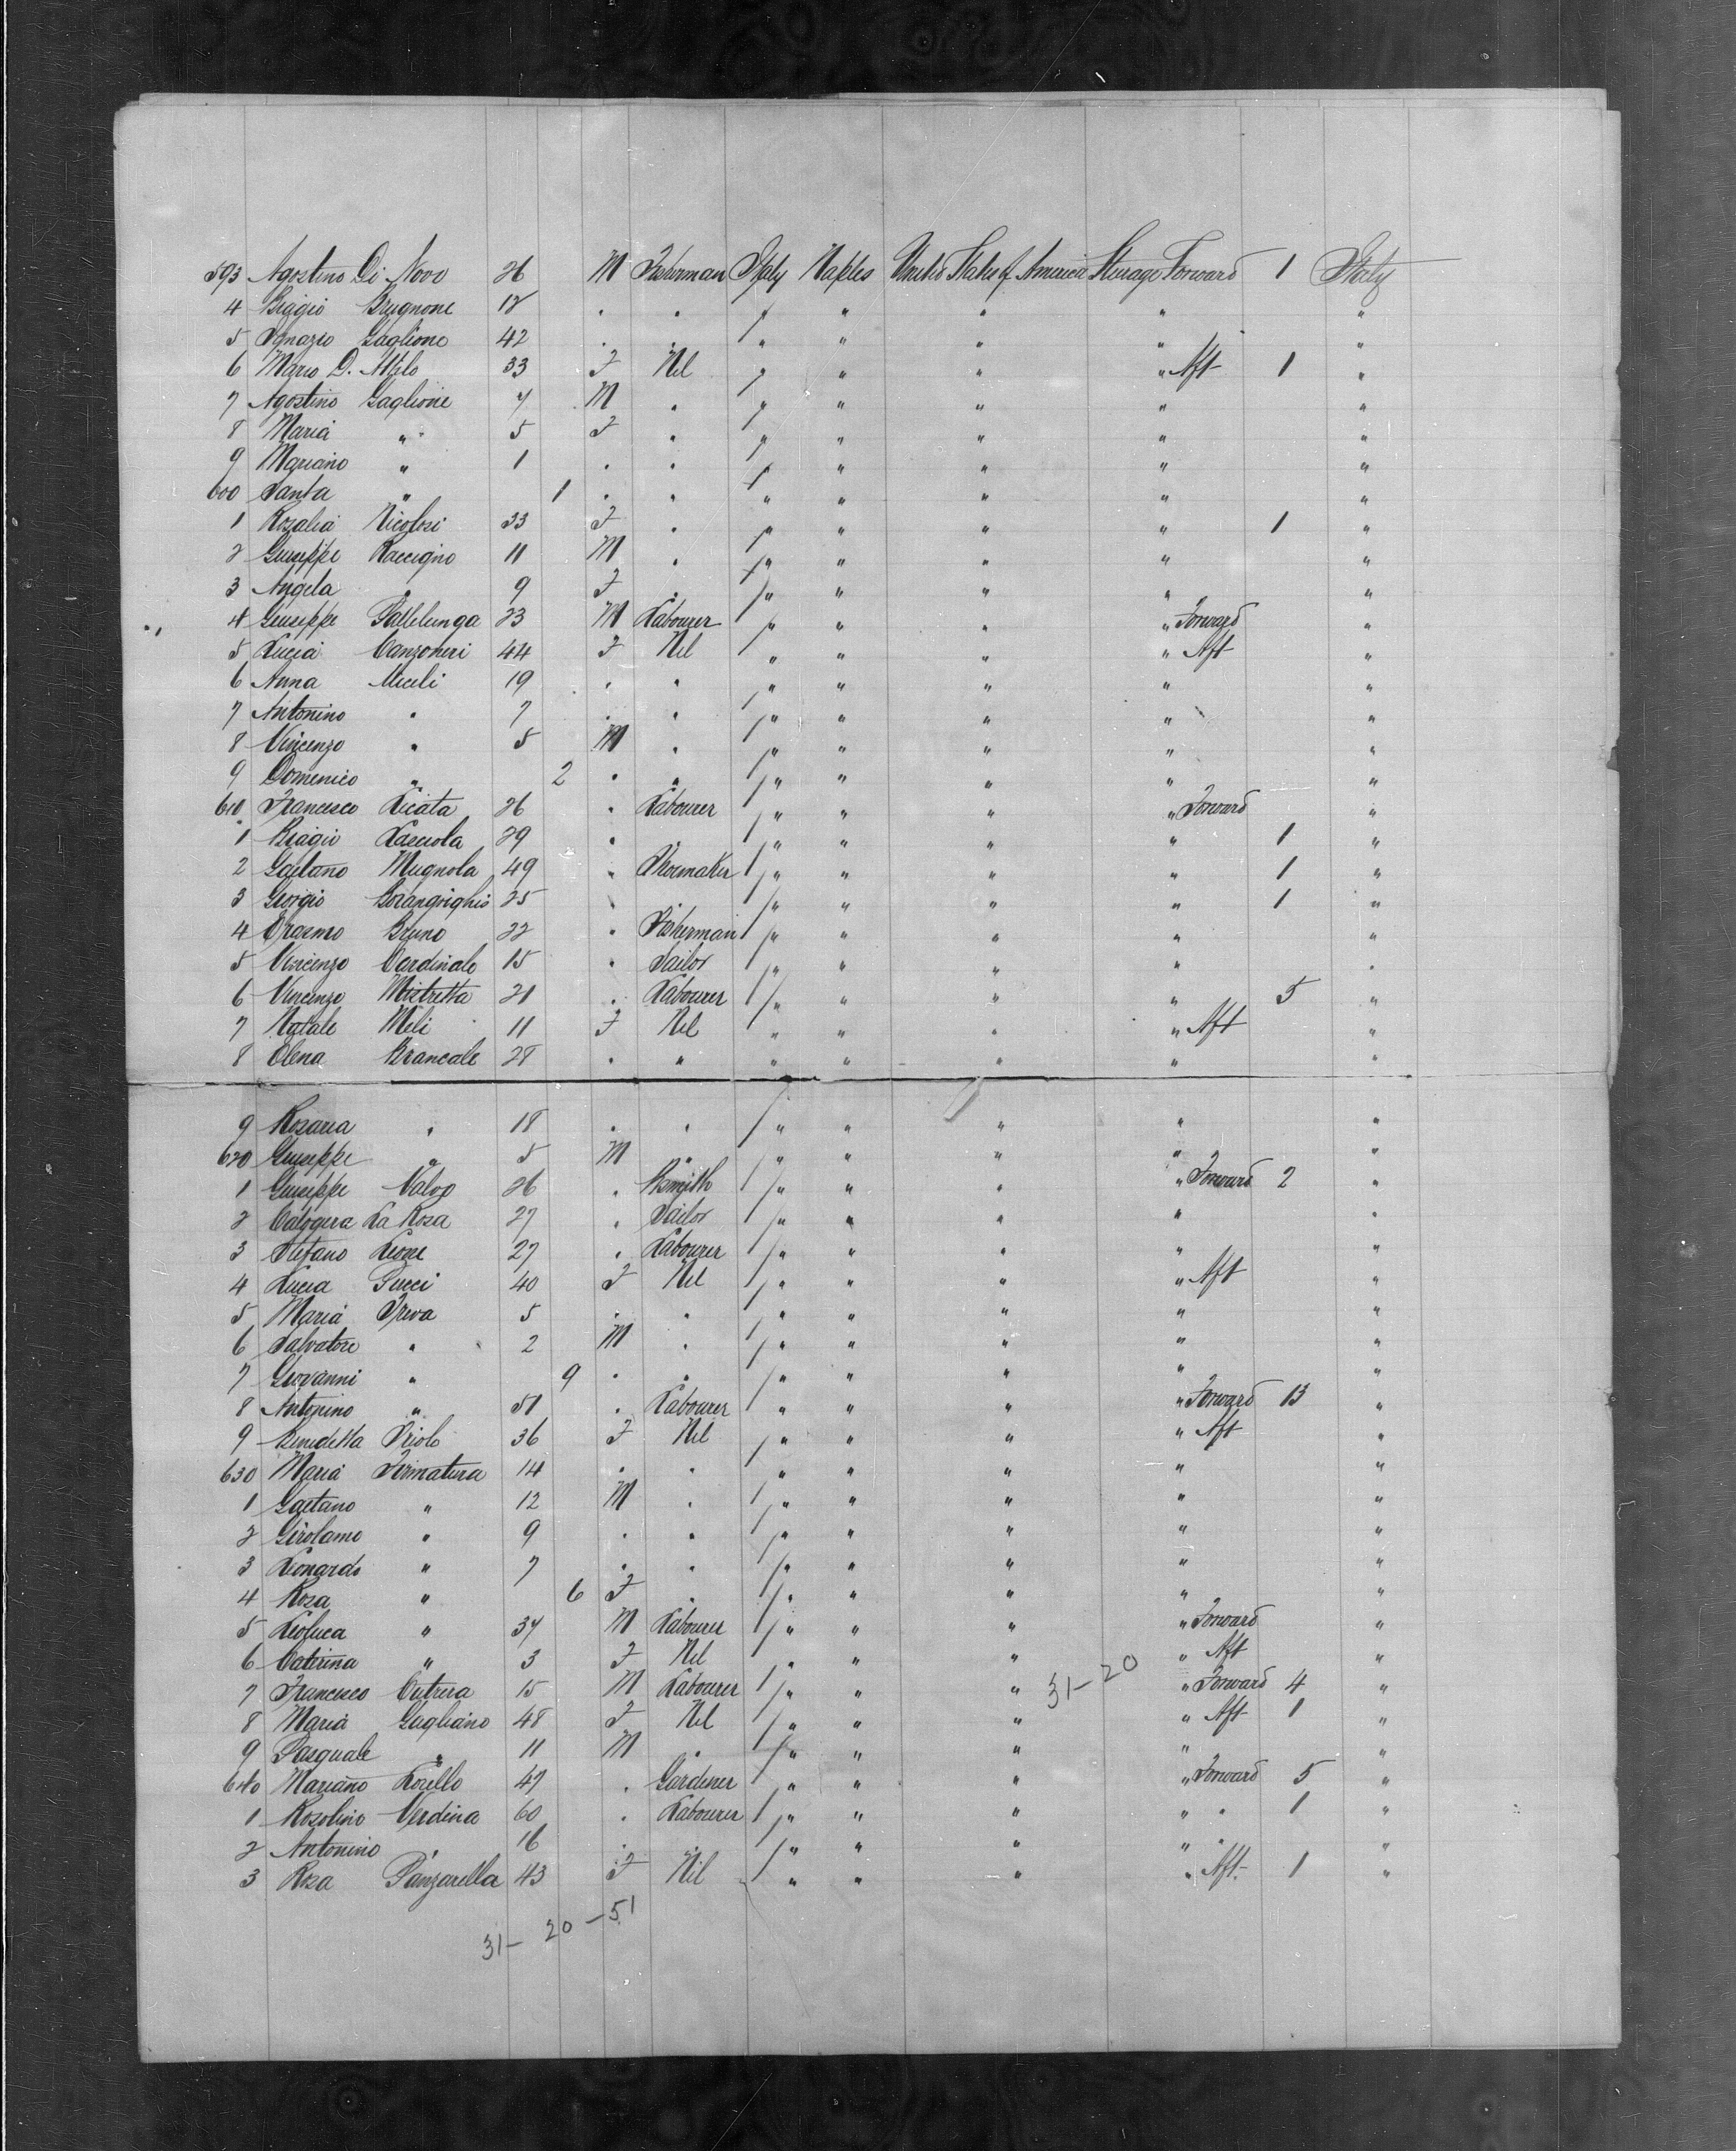 593 Agostino Di Novo 26 M Fisherman Italy Naples United States of America Steerage Forward 1 Italy
4 Biagio Brugnone 18 . . " " " " "
5 Ignazio Gaglione 42 . . " " " " "
6 Maria D. 33 F Nil " " " " Aft 1 "
7 Agostino Gaglione 7 M . " " " " "
8 Maria " 5 F . " " " " "
9 Mariano " 1 . . " " " " "
600 Santa " 1 . . " " " " "
1 Rosalia Nicolosi 33 F . " " " " 1 "
2 Giuseppe 11 M . " " " " "
3 Angela " 9 F . " " " " "
4 Giuseppe Vallelunga 23 M Labourer " " " " Forward "
5 Lucia Canzoneri 44 F Nil " " " " Aft "
6 Anna Miceli 19 . . " " " " "
7 Antonino " 7 . . " " " " "
8 Vincenzo " 5 M . " " " " "
9 Domenico " 2 . . " " " " "
610 Francesco Licata 26 . Labourer " " " " Forward "
1 Biagio Lasciola 29 . " " " " 1 "
2 Gaetano Mugnola 49 " Shoemaker " " " " 1 "
3 Giorgio 25 " " " " " 1 "
4 Erasmo Bruno 22 " Fisherman " " " " "
5 Vincenzo Cardinale 15 . Sailor " " " " .
6 Vincenzo Mistretta 21 . Labourer " " " " 5 "
7 Natale Meli 11 F Nil " " " " Aft "
8 Elena Brancale 28 . " " " " " "
9 Rosaria " 18 . . " " " " "
620 Giuseppe " 5 M " " " " " "
1 Giuseppe Valvo 26 . Bsmith " " " " Forward 2 "
2 Calogera La Rosa 27 . Sailor " " " " .
3 Stefano Leone 27 . Labourer " " " " "
4 Lucia Pucci 40 F Nil " " " " Aft "
5 Maria Treva 5 . . " " " " "
6 Salvatore " 2 M . " " " " "
7 Giovanni " 9 . . " " " " "
8 Antonino " 51 . Labourer " " " " Forward 13 "
9 Benedetta Priolo 36 F Nil " " " " Aft "
630 Maria Firmatura 14 . . " " " " "
1 Gaetano " 12 M . " " " " "
2 Girolamo " 9 . . " " " " "
3 Leonardo " 7 . . " " " " "
4 Rosa " 6 F . " " " " "
5 Leoluca " 37 M Labourer " " " " Forward "
6 Caterina " 3 F Nil " " " " Aft "
7 Francesco Cutrera 15 M Labourer " " " 31-20 " Forward 4 "
8 Maria Gagliano 48 F Nil " " " " Aft 1 "
9 Pasquale " 11 M . " " " " "
640 Mariano Lorello 47 . Gardener " " " " Forward 5 "
1 Rosolino Verdina 60 . Labourer " " " " " 1 "
2 Antonino " 16 . . " " " " " "
3 Rosa Panzarella 43 F Nil " " " " Aft 1 "
31- 20 -51